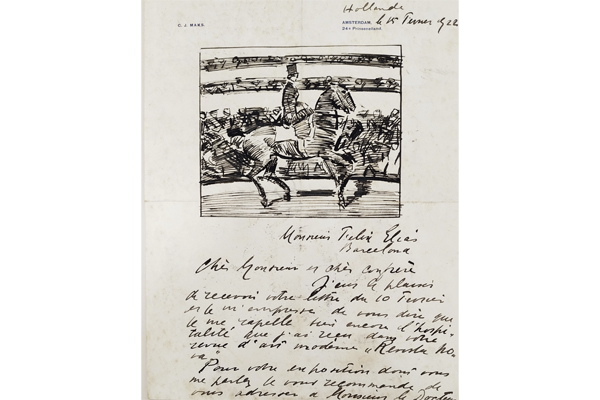 Hollande
C. J. MAKS.
AMSTERDAM. le 15 1922
24A Prinseneiland.
Monsieur Felix Elias
Barcelona
Cher Monsieur et cher confrère
J'eus le plaisir
de recevoir votre lettre du 10
et je m'empresse de vous dire que
je me rapelle encore l'hospi-
talité que j'ai reçu dans votre
revue d'art moderne „Revista No-
va"
Pour votre exposition dont vous
me parlez je vous recommande de
vous adresser à Monsieur le